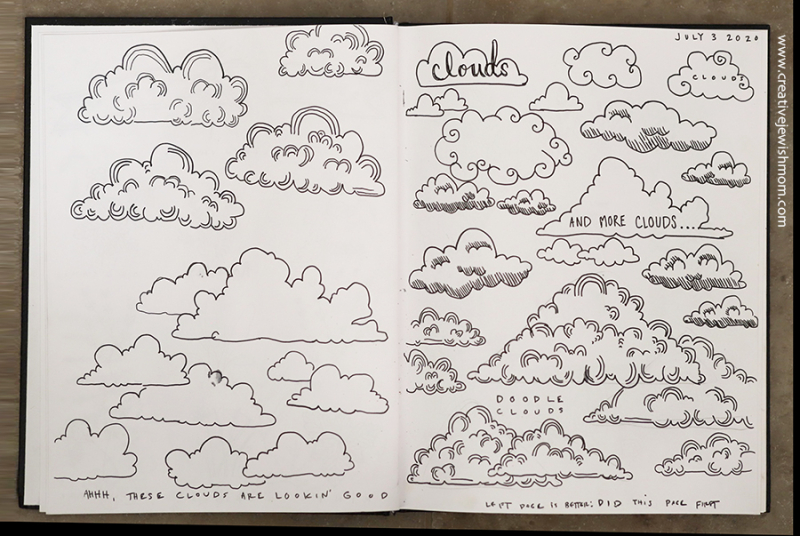 JULY 3 2020
clouds
CLOUDS
AND MORE CLOUDS...
DOODLE
CLOUDS
AHHH, THESE CLOUDS ARE LOOKIN' GOOD
LEFT PAGE IS BETTER: DID THIS PAGE FIRST
www.creativejewishmom.com